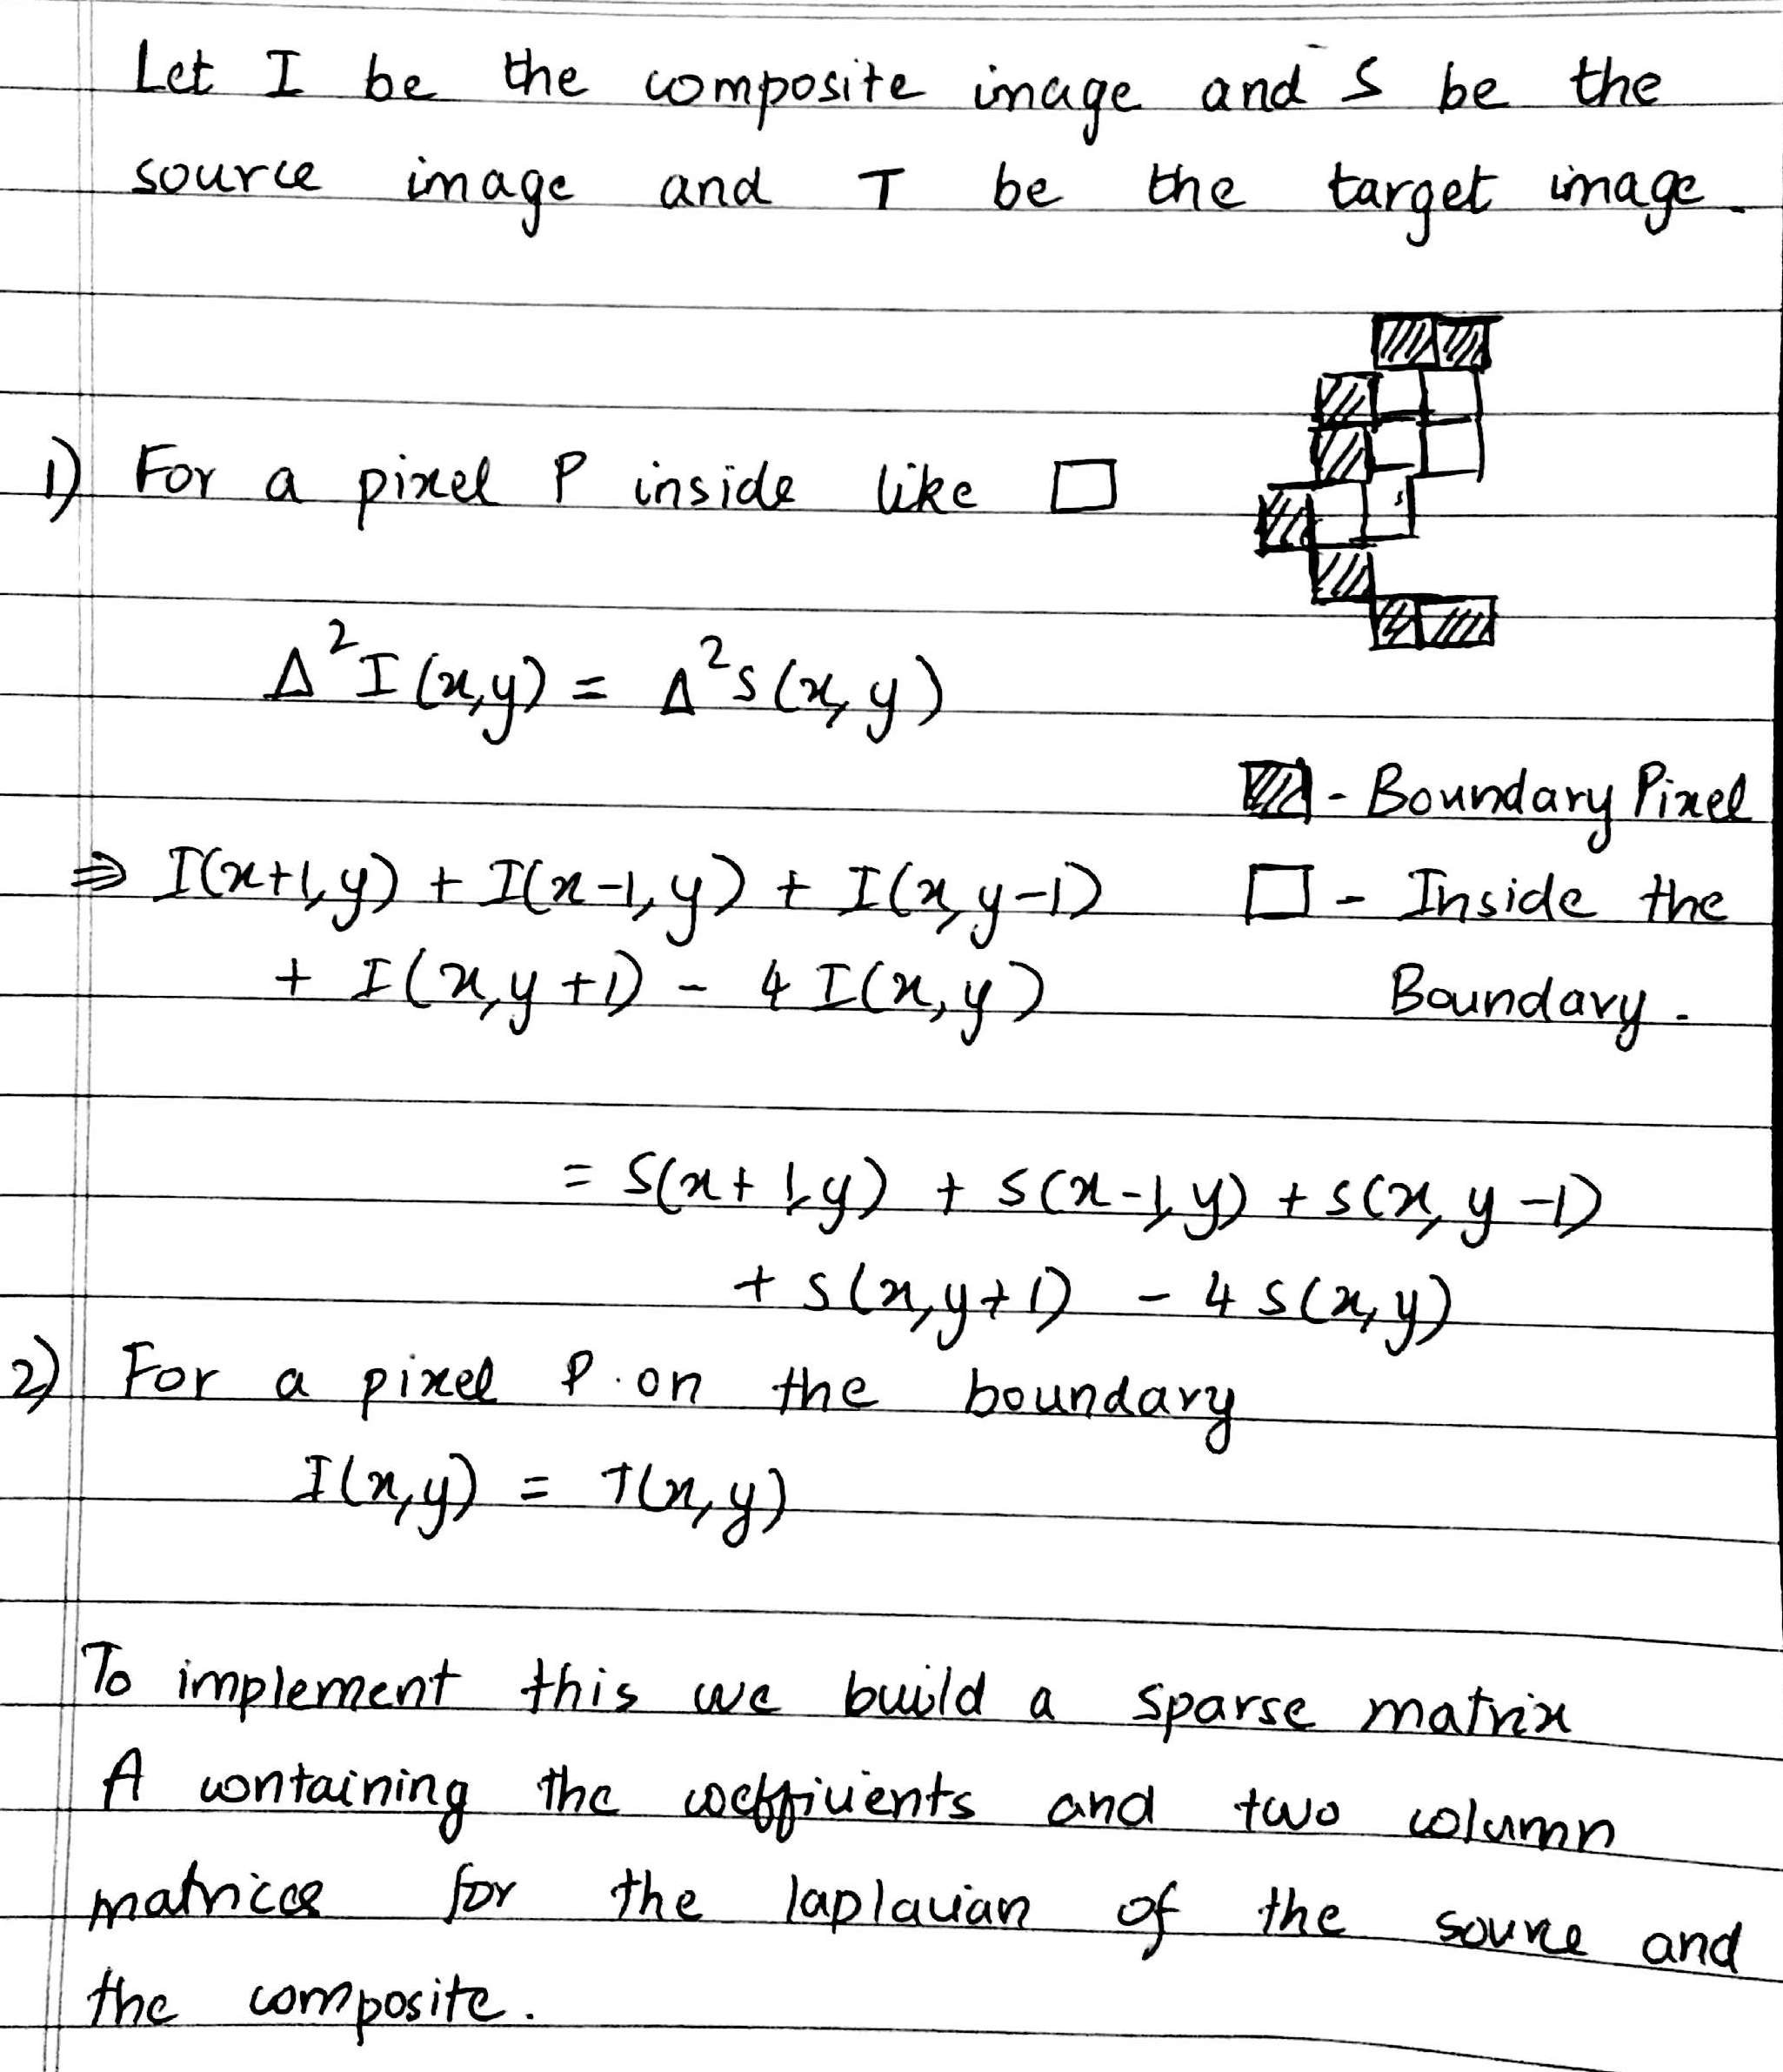 Let I be the composite image and S be the
source image and T be the target image.
1) For a pixel P inside like □
Δ²I(x,y) = Δ²S(x,y)
- Boundary Pixel
⇒ I(x+1,y) + I(x-1,y) + I(x,y-1)
□ - Inside the
+ I(x,y+1) - 4I(x,y)
Boundary.
= S(x+1,y) + S(x-1,y) + S(x,y-1)
+ S(x,y+1) - 4S(x,y)
2) For a pixel P on the boundary
I(x,y) = T(x,y)
To implement this we build a sparse matrix
A containing the coefficients and two column
matrices for the laplacian of the source and
the composite.